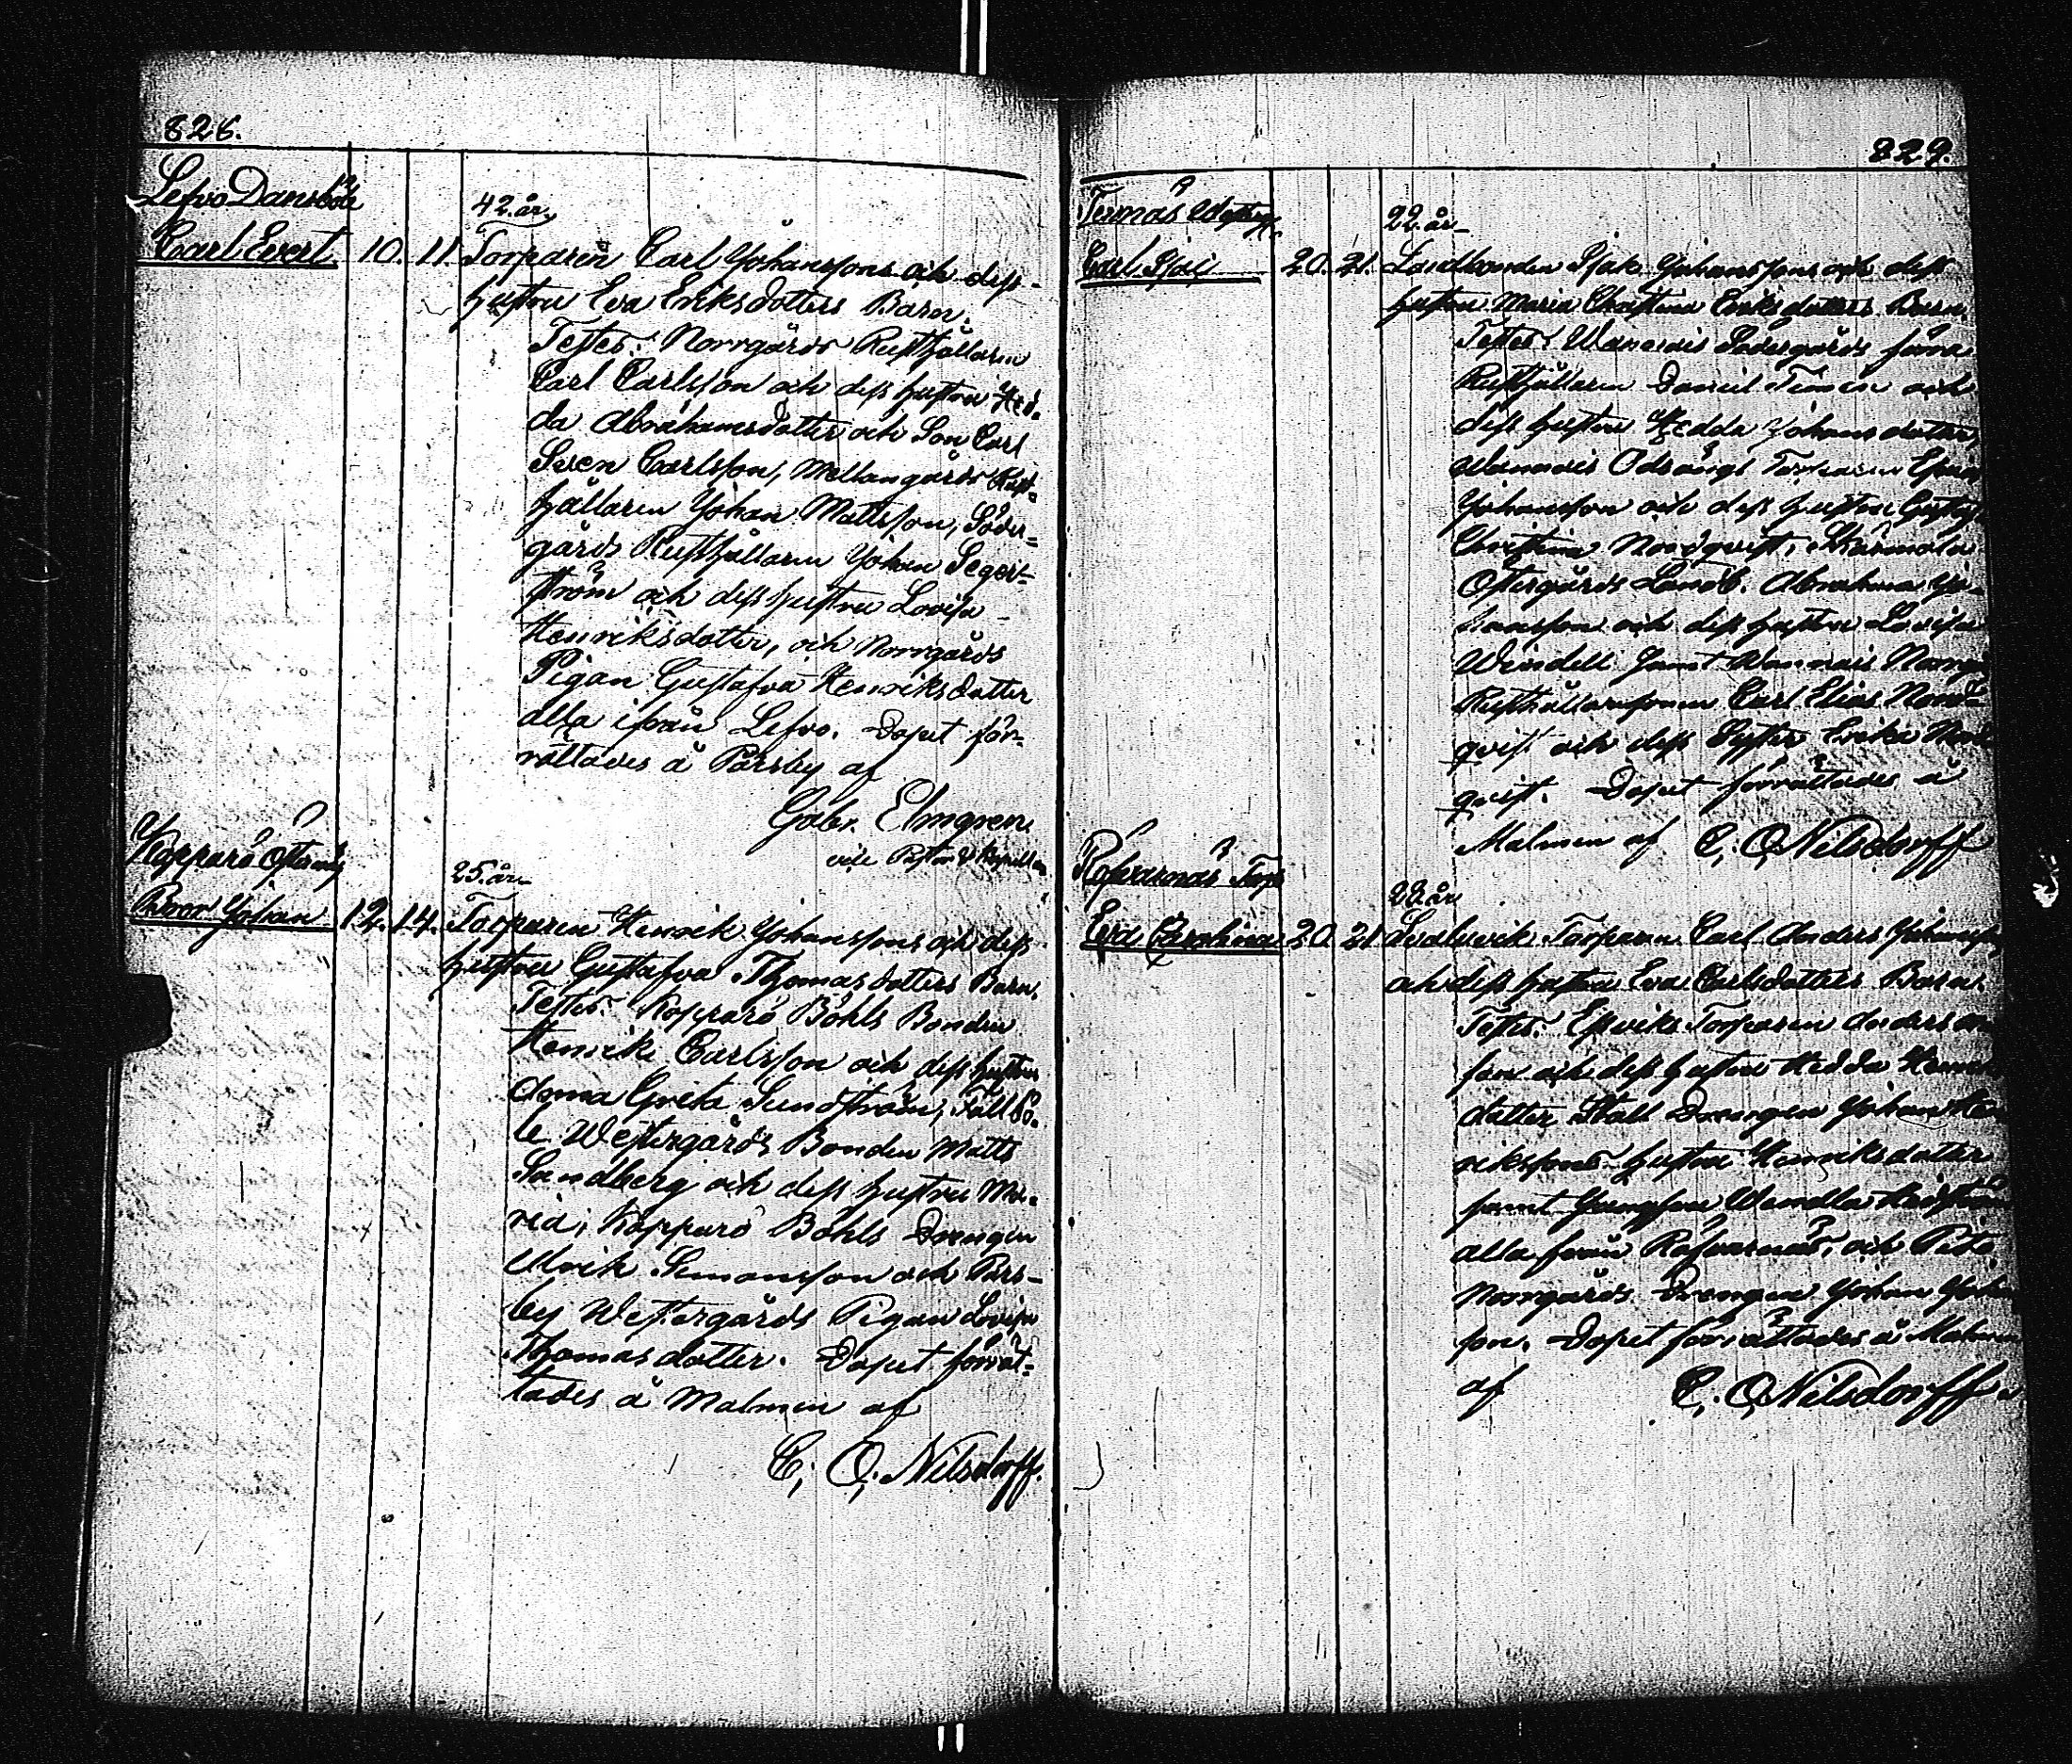 828.
Lefvo Dansböle
42. år
Carl Evert. 10. 11. Torparen Carl Johanssons och dess
hustru Eva Eriksdotters Barn.
Testes: Norrgårds Rusthållaren
Carl Carlsson och dess hustru Hed-
da Abrahamsdotter och Son Carl
Sven Carlsson, Mellangårds Rust-
hållaren Johan Mattsson, Söder-
gårds Rusthållaren Johan Seger-
ström och dess hustru Lovisa
Henriksdotter, och Norrgårds
Pigan Gustafva Henriksdotter
alla ifrån Lefvo. Dopet för-
rättades å Pärsby af
Gabr. Elmgren
vice Pastor & Kapellan
Kopparö
25. år
Johan 12. 14. Torparen Henrik Johanssons och dess
hustru Gustafva Thomasdotters Barn.
Testes: Kopparö Böhls Bonden
Henrik Carlsson och dess hustru
Anna Greta Sundström, Fallbö-
le Westergårds Bonden Matts
Sandberg och dess hustru Ma-
ria, Kopparö Böhls Drengen
Ulrik Simonsson och Pärs-
by Westergårds Pigan Lovisa
Thomasdotter. Dopet förrät-
tades å Malmen af
C. O. Nilsdorff.
829.
22. år
Carl Isac 20. 21. Landbonden Isak Johanssons och dess
hustru Maria Christina Eriksdotters Barn.
Testes: Södergårds
Rusthållaren Daniel och
dess hustru Hedda Johansdotter,
Torparen
Johansson och dess hustru
Christina Nordqvist,
Östergårds Landb. Abraham Jo-
hansson och dess hustru Lovisa
Windell samt
Carl Elias Nord-
qvist och dess Syster Erika Nord-
qvist. Dopet förrättades å
Malmen af C. O. Nilsdorff
Räfvarnäs Torp
22. år
Eva Carolina 20. 21. Torparen Carl Anders
och dess hustru Eva Carlsdotters Barn.
Testes: Torparen Anders
son och dess hustru Hedda
dotter Stall Drengen Johan Hen
rikssons hustru Henriksdotter
samt Wendla
alla från Räfvarnäs, och
Norrgårds Drengen Johan
son. Dopet förrättades å
af C. O. Nilsdorff